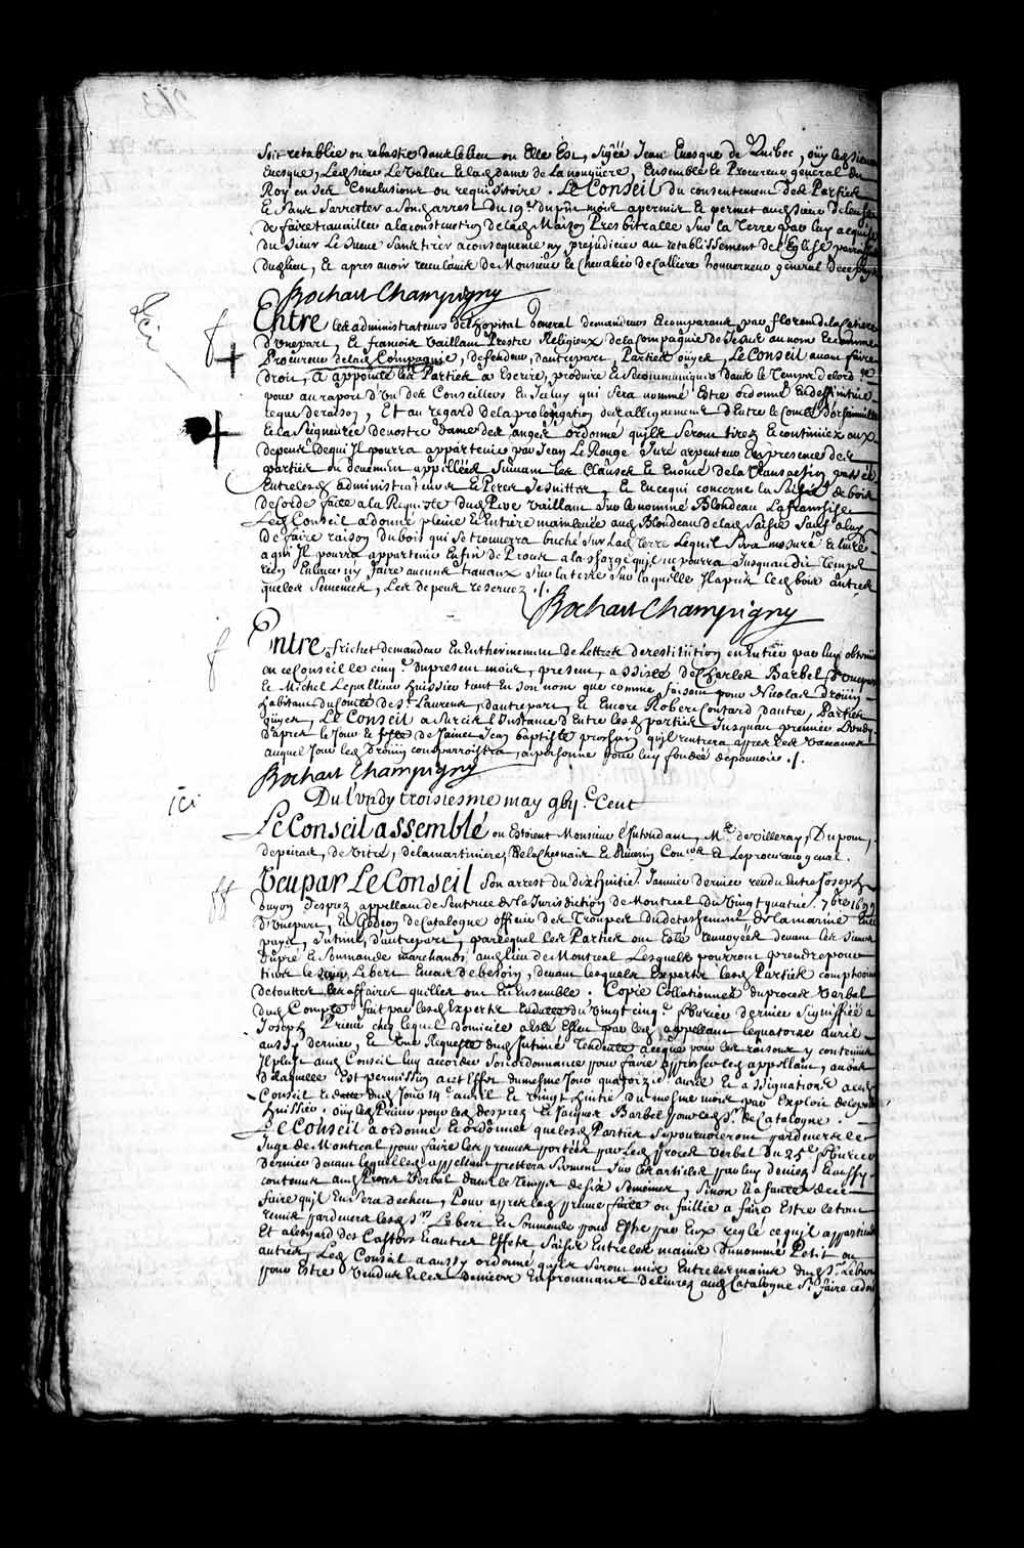 soit retablie ou rebastie dans le lieu ou Elle Est, signé Jean Evesque de Quebec, ouy led sieur
Evesque, led sieur Le Vallet et lad dame de La nouguere, Ensemble le Procureur general du
Roy en ses Conclusions ou requisitoire. Le Conseil du consentement des Parties
Et sans sarrester a son arrest du 19e du pnt mois a permis et permet aud sieur
de faire travailler a la construction de lad Maison Presbitralle sur la Terre par luy acquise
du sieur Le sans tirer a consequence ny prejudicier au retablissement de l'Eglise parroissialle
dud lieu, Et apres avoir receu l'avis de Monsieur le Chevalier de Calliere Gouverneur general de ce pays
Bochart Champigny
Ici
Entre les administrateurs de l'hopital General demandeurs et comparans par florent de la Cetiere
d'Une part, Et francois Vaillant Prestre Religieux de la Compagnie de Jesus au nom et comme
Procureur de lad Compagnie, defendeur, d'autre part, Parties ouyes, Le Conseil avant faire
droit, A appointé les Parties a Escrire, produire et se communiquer dans le temps de lord.ce
pour au raport d'Un des Conseillers En Iceluy qui sera nommé Estre ordonné En deffinitive
ce que de raison, Et au regard de la prolongation des allignemens d'Entre le Comté d'orsainville
Et la seigneurie de nostre dame des anges ordonné qu'ils seront tirez et continuez aux
depens de qui Il pourra appartenir par Jean Le Rouge Juré arpenteur En presence des
parties ou deuement appellées suivant les Clauses et Enoncé de la transaction passée
Entre lesd administrateurs et Peres Jesuittes, Et En ce qui concerne la saisie de bois
de corde faite a la Requeste dud Pere Vaillant sur le nommé Blondeau La franchise
Led Conseil a donné pleine et Entiere mainlevée aud Blondeau de lad saisie sauf a luy
de faire raison du bois qui se trouverra buché sur lad terre Lequel sera mesuré et livré
a qui Il pourra appartenir Enfin de Procés a la charge qu'il ne pourra jusques au dit temps
rien Enlever ny faire aucuns travaux sur la terre sur laquelle Il a pris led bois autres
que les semences, Les depens reservez ./.
Bochart Champigny
Entre frichet demandeur En Entherinement de Lettres de restitution en Entier par luy obtenues
en ce Conseil le cinqe du present mois, present, assisté de Charles Barbel d'une part
Et Michel Lepallieur huissier tant En son nom que comme faisant pour Nicolas Droüin
habitant du Comté de St Laurens, d'autre part, Et Encore Robert Coutard d'autre, Parties
ouyes, Le Conseil a surcis l'Instance d'Entre lesd parties jusques au premier Lundy
d'apres le Jour et feste de saint Jean baptiste prochain qu'il rentrera apres les vacances
auquel Jour led Droüin comparroistra, en personne ou pour luy fondée de pouvoir ./.
Bochart Champigny
ici
Du Lundy troisiesme may gbij.c Cent
Le Conseil assemblé ou Estoient Monsieur l'Intendant, Me de Villeray, Dupont,
depeiras, de Vitré, de la martiniere, de la Chesnaie et Riverin Con.ers Et Le procureur g'nal.
Veu par Le Conseil son arrest du dix huitie Janvier dernier rendu Entre Joseph
Guyon desprez appellant de sentence de la Jurisdiction de Montreal du Vingt quatre 7bre 1699
d'Une part, Et Gedeon de Catalogne officier des Trouppes du detachement de la marine En ce
pays, Intimé, d'autre part, par lequel les Parties ont Esté renvoyées devant les sieurs
dupré et Soumande marchands aud lieu de Montreal Lesquels pourront prendre pour
tiers le sieur Lebert En cas de besoin, devant lesquels Experts lesd Parties compteront
de touttes les affaires quilles ont Eu Ensemble. Copie Collationnée du procez verbal
dud Compte fait par lesd Experts En datte du Vingt cinqe fevrier dernier signiffiée a
Joseph Prieur chez lequel domicile a Esté Esleu par led appellant le quatorze avril
aussy dernier, Et Une Requeste dud Intimé tendante a ce que pour les raisons y contenues
Il plust aud Conseil luy accorder son ordonnance pour faire approcher led appellant, au bas
de Laquelle Est permission a cet Effet du mesme Jour quatorze avril Et assignation a ced
Conseil En datte dud Jour 14e avril Et Vingt huitie du mesme mois par Exploit de
huissier. Ouy led Prieur pour led desprez Et Jacques Barbel pour led sr de Catalogne.
Le Conseil a ordonné Et ordonne que lesd Parties se pourvoieront pardevers le
Juge de Montreal pour faire les preuves portées par led procez verbal du 25e fevrier
dernier devant lequel led appellant prettera serment sur les articles par luy deniez Et aussy
contenus aud Procez Verbal dans le temps de six semaines, sinon Et a faute de ce
faire qu'il En sera decheu, Pour apres lad preuve faite ou faillie a faire Estre le tout
remis pardevers lesd srs Lebert Et Soumande pour Estre par Eux reglé ce qu'il appartiendra
Et a l'esgard des Castors Et autres Effets saisis Entre les mains du nommé Petit ou
autres, Led Conseil a aussy ordonné qu'ils seront mis Entre les mains dud sr Lebert
pour Estre Vendus Et les deniers En provenans delivrez aud Catalogne sr faire ce doit